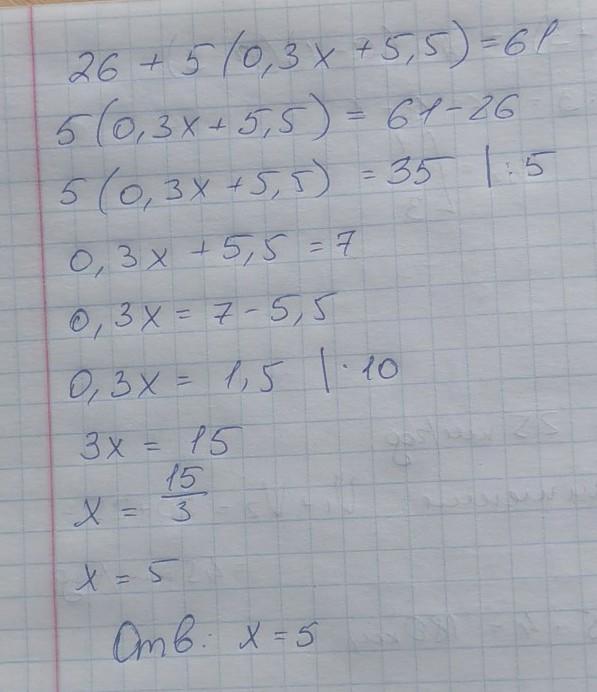 26 + 5(0,3x + 5,5) = 61
5(0,3x + 5,5) = 61 - 26
5(0,3x + 5,5) = 35 | : 5
0,3x + 5,5 = 7
0,3x = 7 - 5,5
0,3x = 1,5 | · 10
3x = 15
x = 15/3
x = 5
Отв: x = 5